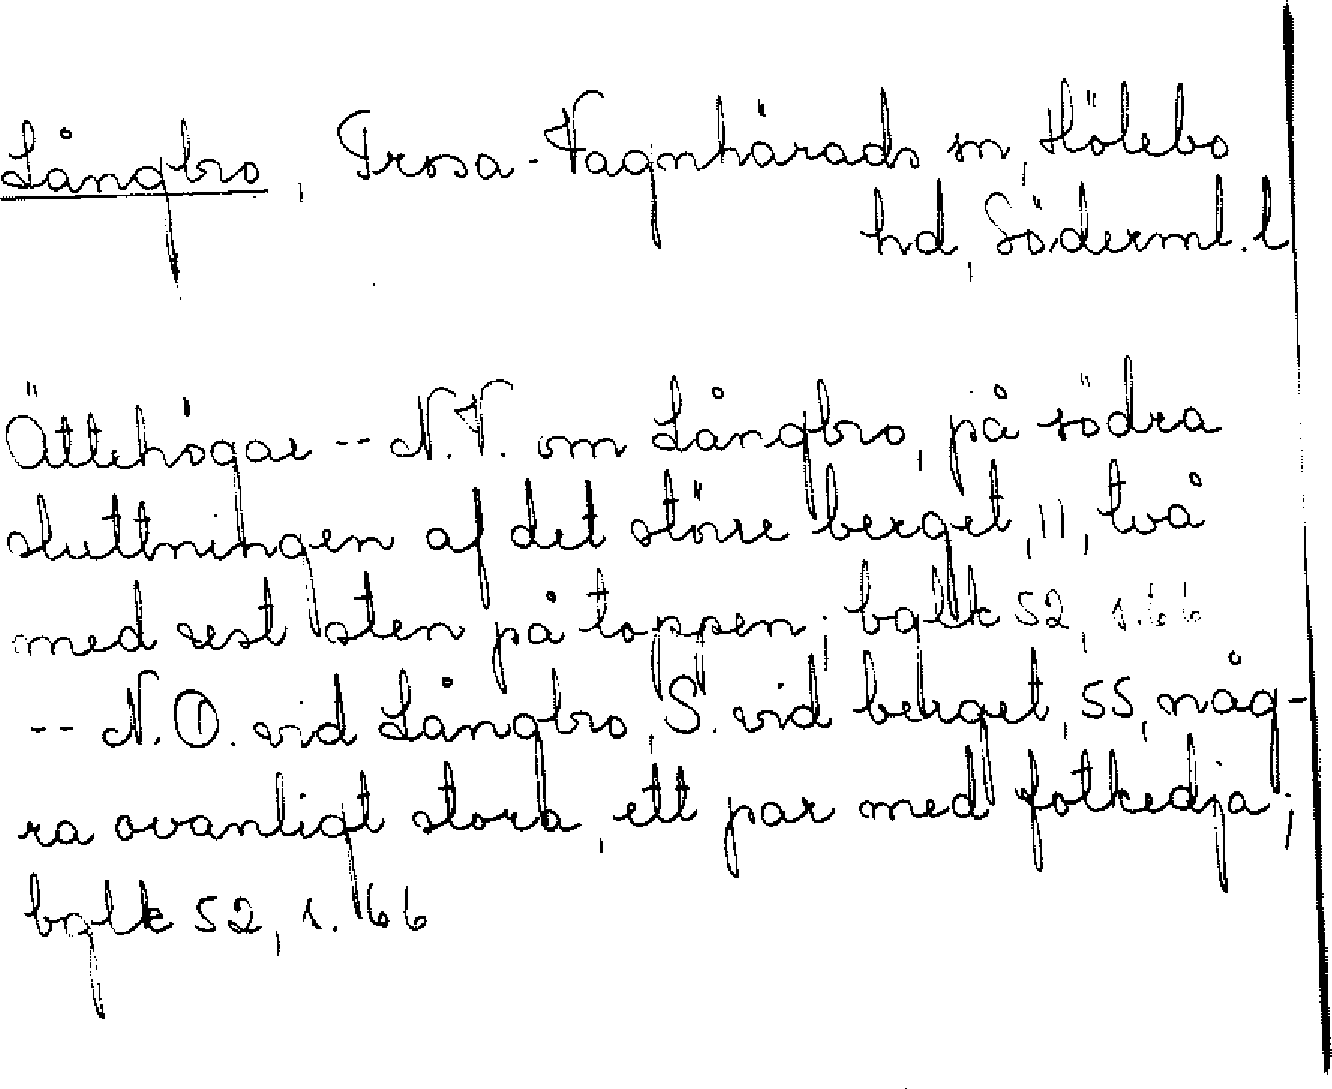 Långbro, Trosa-Vagnhärads sn, Hölebo
hd, Söderml. l
Ättehögar -- N.V. om Långbro, på södra
sluttningen af det större berget, 11, två
med rest sten på toppen; bglk 52, s. 66
-- N.O. vid Långbro, S. vid berget, 55, någ-
ra ovanligt stora, ett par med fotkedja;
bglk 52, s. 66